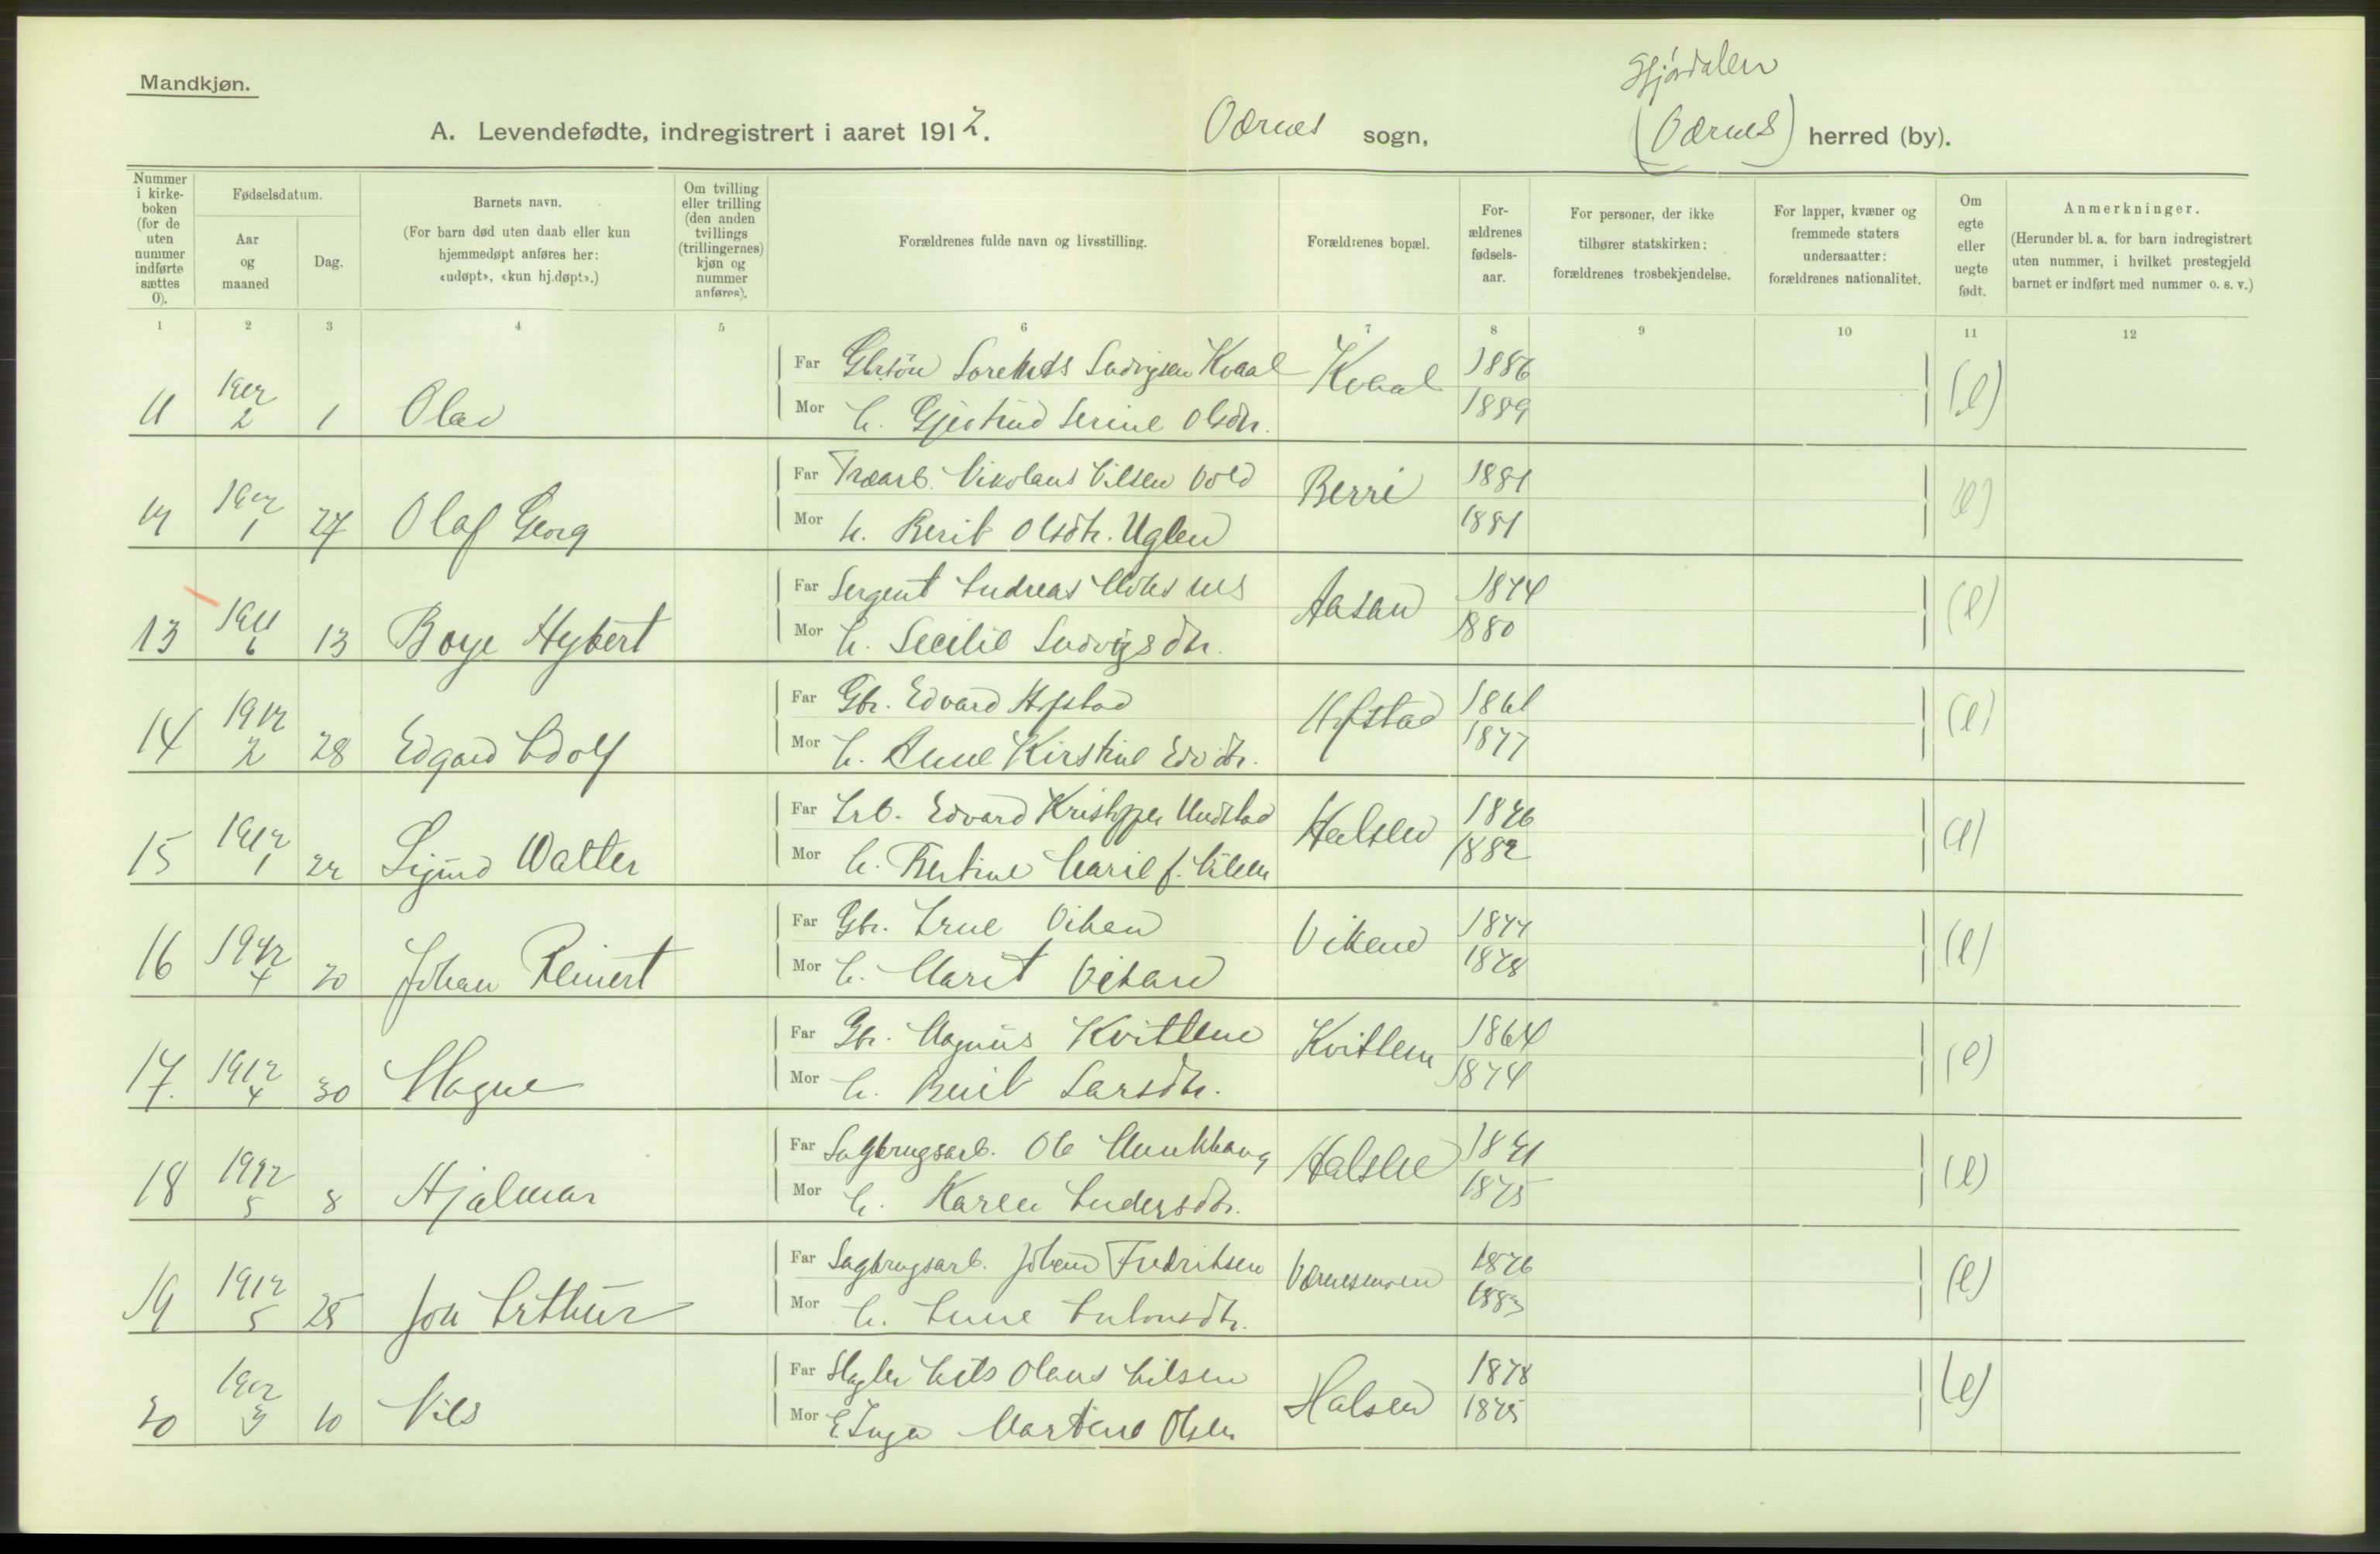 Mandkjøn.
Stjørdalen
A. Levendefødte, indregistrert i aaret 1912. Værnes sogn, (Værnes) herred (by).
Nummer i kirkeboken (for de uten nummer indførte sættes 0).
Fødselsdatum.
Aar og maaned
Dag.
Barnets navn.
(For barn død uten daab eller kun hjemmedøpt anføres her: «udøpt», «kun hj.døpt».)
Om tvilling eller trilling (den anden tvillings (trillingernes) kjøn og nummer anføres).
Forældrenes fulde navn og livsstilling.
Forældrenes bopæl.
Forældrenes fødselsaar.
For personer, der ikke tilhører statskirken: forældrenes trosbekjendelse.
For lapper, kvæner og fremmede staters undersaatter: forældrenes nationalitet.
Om egte eller uegte født.
Anmerkninger.
(Herunder bl. a. for barn indregistrert uten nummer, i hvilket prestegjeld barnet er indført med nummer o. s. v.)
1 2 3 4 5 6 7 8 9 10 11 12
Far Gbrsøn Ludvigsen Kvaal Kvaal 1886
11 1912 2 1 Olav Mor h. Gjertrud Serine Olsdtr. 1889 (e)
Far Træarb. Nikolaus Nilsen Vold Berri 1881
1912 1 27 Olaf Georg Mor h. Berit Olsdtr. Uglen 1881 (e)
Far Sergent Andreas Aasan 1874
13 1911 6 13 Boye Hybert Mor h. Secilie Ludvigsdtr. 1880 (e)
Far Gbr. Edvard Hofstad Hofstad 1861
14 1912 2 28 Edgard Adolf Mor h. Anne Kirstine Edvdtr. 1877 (e)
Far Arb. Edvard Kristoffer Halsen 1876
15 1912 1 22 Sigurd Walter Mor h. Bertine Marie f. Nilsen 1882 (e)
Far Gbr. Arne Vikan Vikene 1877
16 1912 4 20 Johan Reinert Mor h. Marit Vikan 1878 (e)
Far Gbr. Magnus Kvitlene Kvitlem 1864
17. 1912 4 30 Magne Mor h. Berit Larsdtr. 1874 (e)
Far Sagbrugsarb. Ole Munkhaug Halsen 1871
18 1912 5 8 Hjalmar Mor h. Karen Andersdtr. 1875 (e)
Far Sagbrugsarb. Johan Fredriksen Værnesmoen 1876
19 1912 5 25 Jon Arthur Mor h. Anne Antonsdtr. 1883 (e)
Far Nils Olaus Nilsen Halsen 1878
20 1912 3 10 Nils Mor E Inga Martine Olsen 1875 (e)